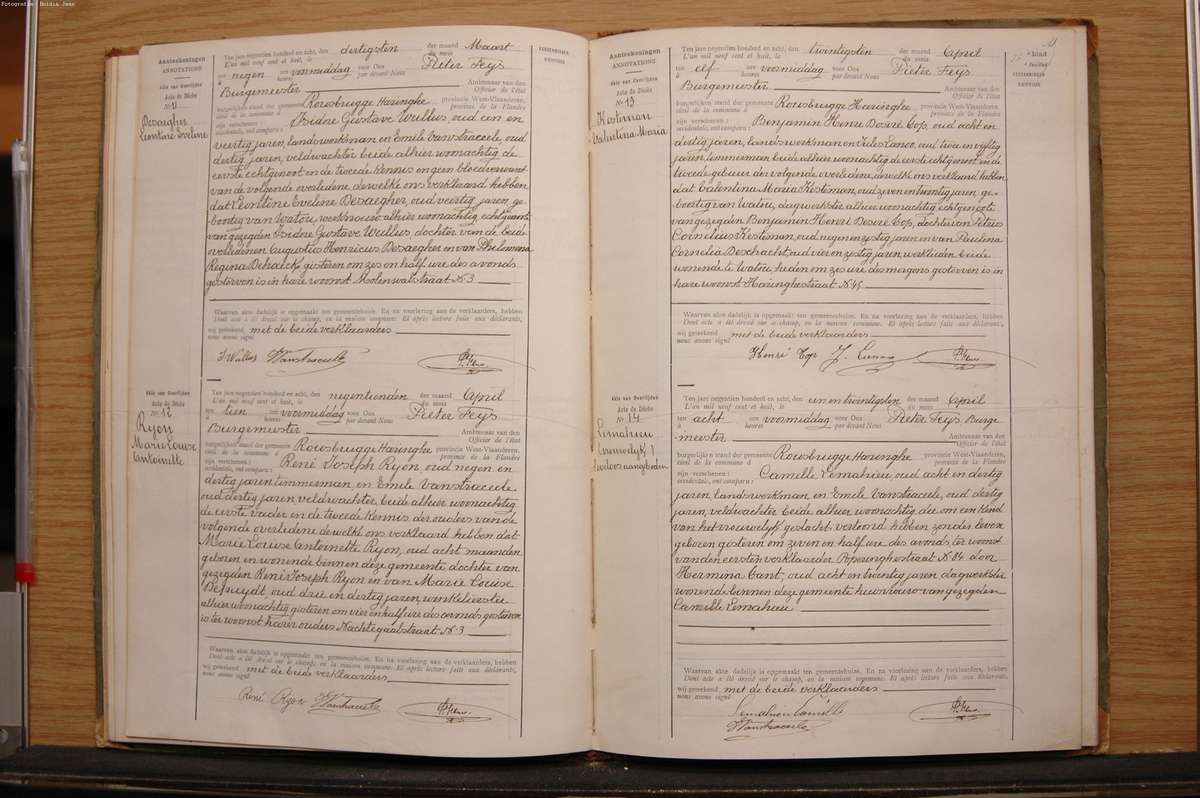 Fotografie : Boidin Jean
Aanteekeningen
ANNOTATIONS
Akte van Overlijden
Acte de Décès
Nº 11
Desaegher
Leontine Eveline
Ten jare negentien honderd en acht, den dertigsten der maand Maart
L'an mil neuf cent et huit, le du mois
ten negen ure voormiddag voor Ons Pieter Feys
à heures par devant Nous
Burgemeester Ambtenaar van den
Officier de l'état
burgerlijken stand der gemeente Rousbrugge Haringhe provincie West-Vlaanderen,
civil de la commune d province de la Flandre
zijn verschenen : Isidore Gustave Wullus, oud een en
occidentale, ont comparu :
veertig jaren, landswerkman en Emile Vanstraceele, oud
dertig jaren, veldwachter beide alhier woonachtig de
eerste echtgenoot en de tweede kennis en geen bloedverwant
van de volgende overledene dewelke ons verklaard hebben
dat Leontine Eveline Desaegher, oud veertig jaren, ge-
boortig van Watou, alhier woonachtig, echtgenoote
van gezegden Isidore Gustave Wullus dochter van de beide
overledenen Augustus Henricus Desaegher en van Philomena
Regina Dehaeck, gisteren om zes en half ure des avonds
gestorven is in hare woonst Molenwalstraat Nº 3
Waarvan akte dadelijk is opgemaakt ten gemeentehuize. En na voorlezing aan de verklaarders, hebben
Dont acte a été dressé sur le champ, en la maison commune. Et après lecture faite aux déclarants,
wij geteekend met de beide verklaarders
nous avons signé
I. Wullus Vanstraceele P. Feys
Akte van Overlijden
Acte de Décès
Nº 12
Ryon
Marie Louise
Antoinette
Ten jare negentien honderd en acht, den negentienden der maand April
L'an mil neuf cent et huit, le du mois
ten tien ure voormiddag voor Ons Pieter Feys
à heures par devant Nous
Burgemeester Ambtenaar van den
Officier de l'état
burgerlijken stand der gemeente Rousbrugge Haringhe provincie West-Vlaanderen,
civil de la commune d province de la Flandre
zijn verschenen : René Joseph Ryon, oud negen en
occidentale, ont comparu :
dertig jaren, timmerman en Emile Vanstraceele
oud dertig jaren, veldwachter, beide alhier woonachtig
de eerste vader en de tweede kennis der ouders van de
volgende overledene dewelke ons verklaard hebben dat
Marie Louise Antoinette Ryon, oud acht maanden
geboren en wonende binnen deze gemeente dochter van
gezegden René Joseph Ryon en van Marie Louise
Depruydt, oud drie en dertig jaren, winkelierster
alhier woonachtig gisteren om vier en half ure des avonds gestorven
is ter woonst harer ouders Nachtegaalstraat Nº 3
Waarvan akte dadelijk is opgemaakt ten gemeentehuize. En na voorlezing aan de verklaarders, hebben
Dont acte a été dressé sur le champ, en la maison commune. Et après lecture faite aux déclarants,
wij geteekend met de beide verklaarders
nous avons signé
René Ryon Vanstraceele P. Feys
Aanteekeningen
ANNOTATIONS
Akte van Overlijden
Acte de Décès
Nº 13
Kesteman
Valentina Maria
Ten jare negentien honderd en acht, den twintigsten der maand April
L'an mil neuf cent et huit, le du mois
ten elf ure voormiddag voor Ons Pieter Feys
à heures par devant Nous
Burgemeester Ambtenaar van den
Officier de l'état
burgerlijken stand der gemeente Rousbrugge Haringhe provincie West-Vlaanderen,
civil de la commune d province de la Flandre
zijn verschenen : Benjamin Henri Desiré Top, oud acht en
occidentale, ont comparu :
dertig jaren, landswerkman en Jules Lanoo, oud twee en vijftig
jaren, timmerman beide alhier woonachtig de eerste echtgenoot en de
tweede gebuur der volgende overledene, dewelke ons verklaard hebben
dat Valentina Maria Kesteman, oud zeven en twintig jaren, ge-
boortig van Watou, dagwerkster alhier woonachtig echtgenoote
van gezegden Benjamin Henri Desiré Top, dochter van Petrus
Cornelius Kesteman, oud negen en zestig jaren en van Paulina
Cornelia Deschacht, oud vier en zestig jaren, werklieden beide
wonende te Watou, heden om zes ure des morgens gestorven is in
hare woonst Haringhestraat Nº 45
Waarvan akte dadelijk is opgemaakt ten gemeentehuize. En na voorlezing aan de verklaarders, hebben
Dont acte a été dressé sur le champ, en la maison commune. Et après lecture faite aux déclarants,
wij geteekend met de beide verklaarders
nous avons signé
Henri Top J. Lanoo P. Feys
Akte van Overlijden
Acte de Décès
Nº 14
Lemahieu
levenloos aangeboden
Ten jare negentien honderd en acht, den een en twintigsten der maand April
L'an mil neuf cent et huit, le du mois
ten acht ure voormiddag voor Ons Pieter Feys Burge-
à heures par devant Nous
meester Ambtenaar van den
Officier de l'état
burgerlijken stand der gemeente Rousbrugge Haringhe provincie West-Vlaanderen,
civil de la commune d province de la Flandre
zijn verschenen : Camille Lemahieu, oud acht en dertig
occidentale, ont comparu :
jaren, landswerkman en Emile Vanstraceele, oud dertig
jaren, veldwachter beide alhier woonachtig, die om een kind
van het vrouwelijk geslacht vertoond hebben zonder leven
geboren gisteren om zeven en half ure des avonds, ter woonst
van den eersten verklaarder Poperinghestraat Nº 84 door
Hermina Cant, oud acht en twintig jaren, dagwerkster
wonende binnen deze gemeente huisvrouw van gezegden
Camille Lemahieu
Waarvan akte dadelijk is opgemaakt ten gemeentehuize. En na voorlezing aan de verklaarders, hebben
Dont acte a été dressé sur le champ, en la maison commune. Et après lecture faite aux déclarants,
wij geteekend met de beide verklaarders
nous avons signé
Lemahieu Camille P. Feys
Vanstraceele